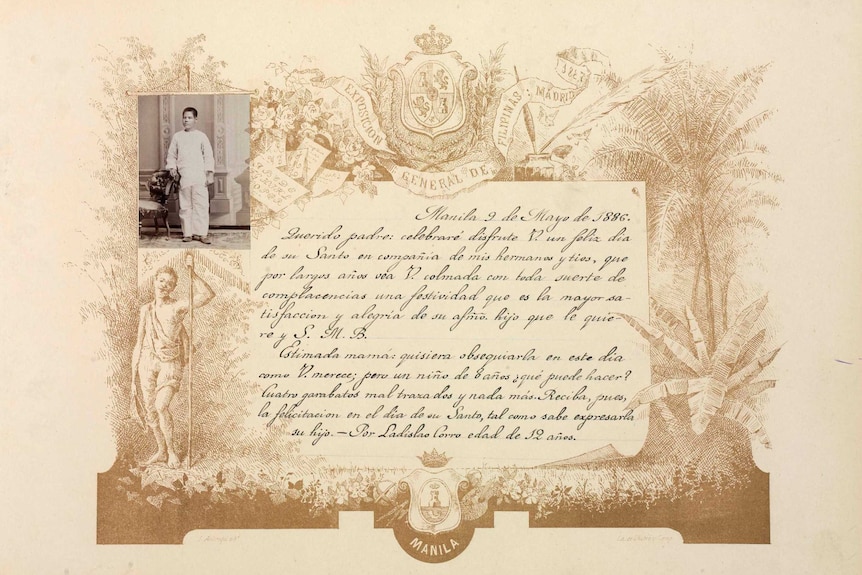 EXPOSICION
GENERAL DE
FILIPINAS
MADRID
1887
Manila 9 de Mayo de 1886.
Querido padre: celebraré disfrute V. un feliz dia
de su Santo en compañia de mis hermanos y tios, que
por largos años vea V. colmada con toda suerte de
complacencias una festividad que es la mayor sa-
tisfaccion y alegria de su afmo. hijo que le quie-
re y S. M. B.
Estimada mamá: quisiera obsequiarla en este dia
como V. merece; pero un niño de 8 años ¿qué puede hacer?
Cuatro garabatos mal trazados y nada más. Reciba, pues,
la felicitacion en el dia de su Santo, tal como sabe expresarla
su hijo. — Por Ladislao Corro edad de 12 años.
MANILA